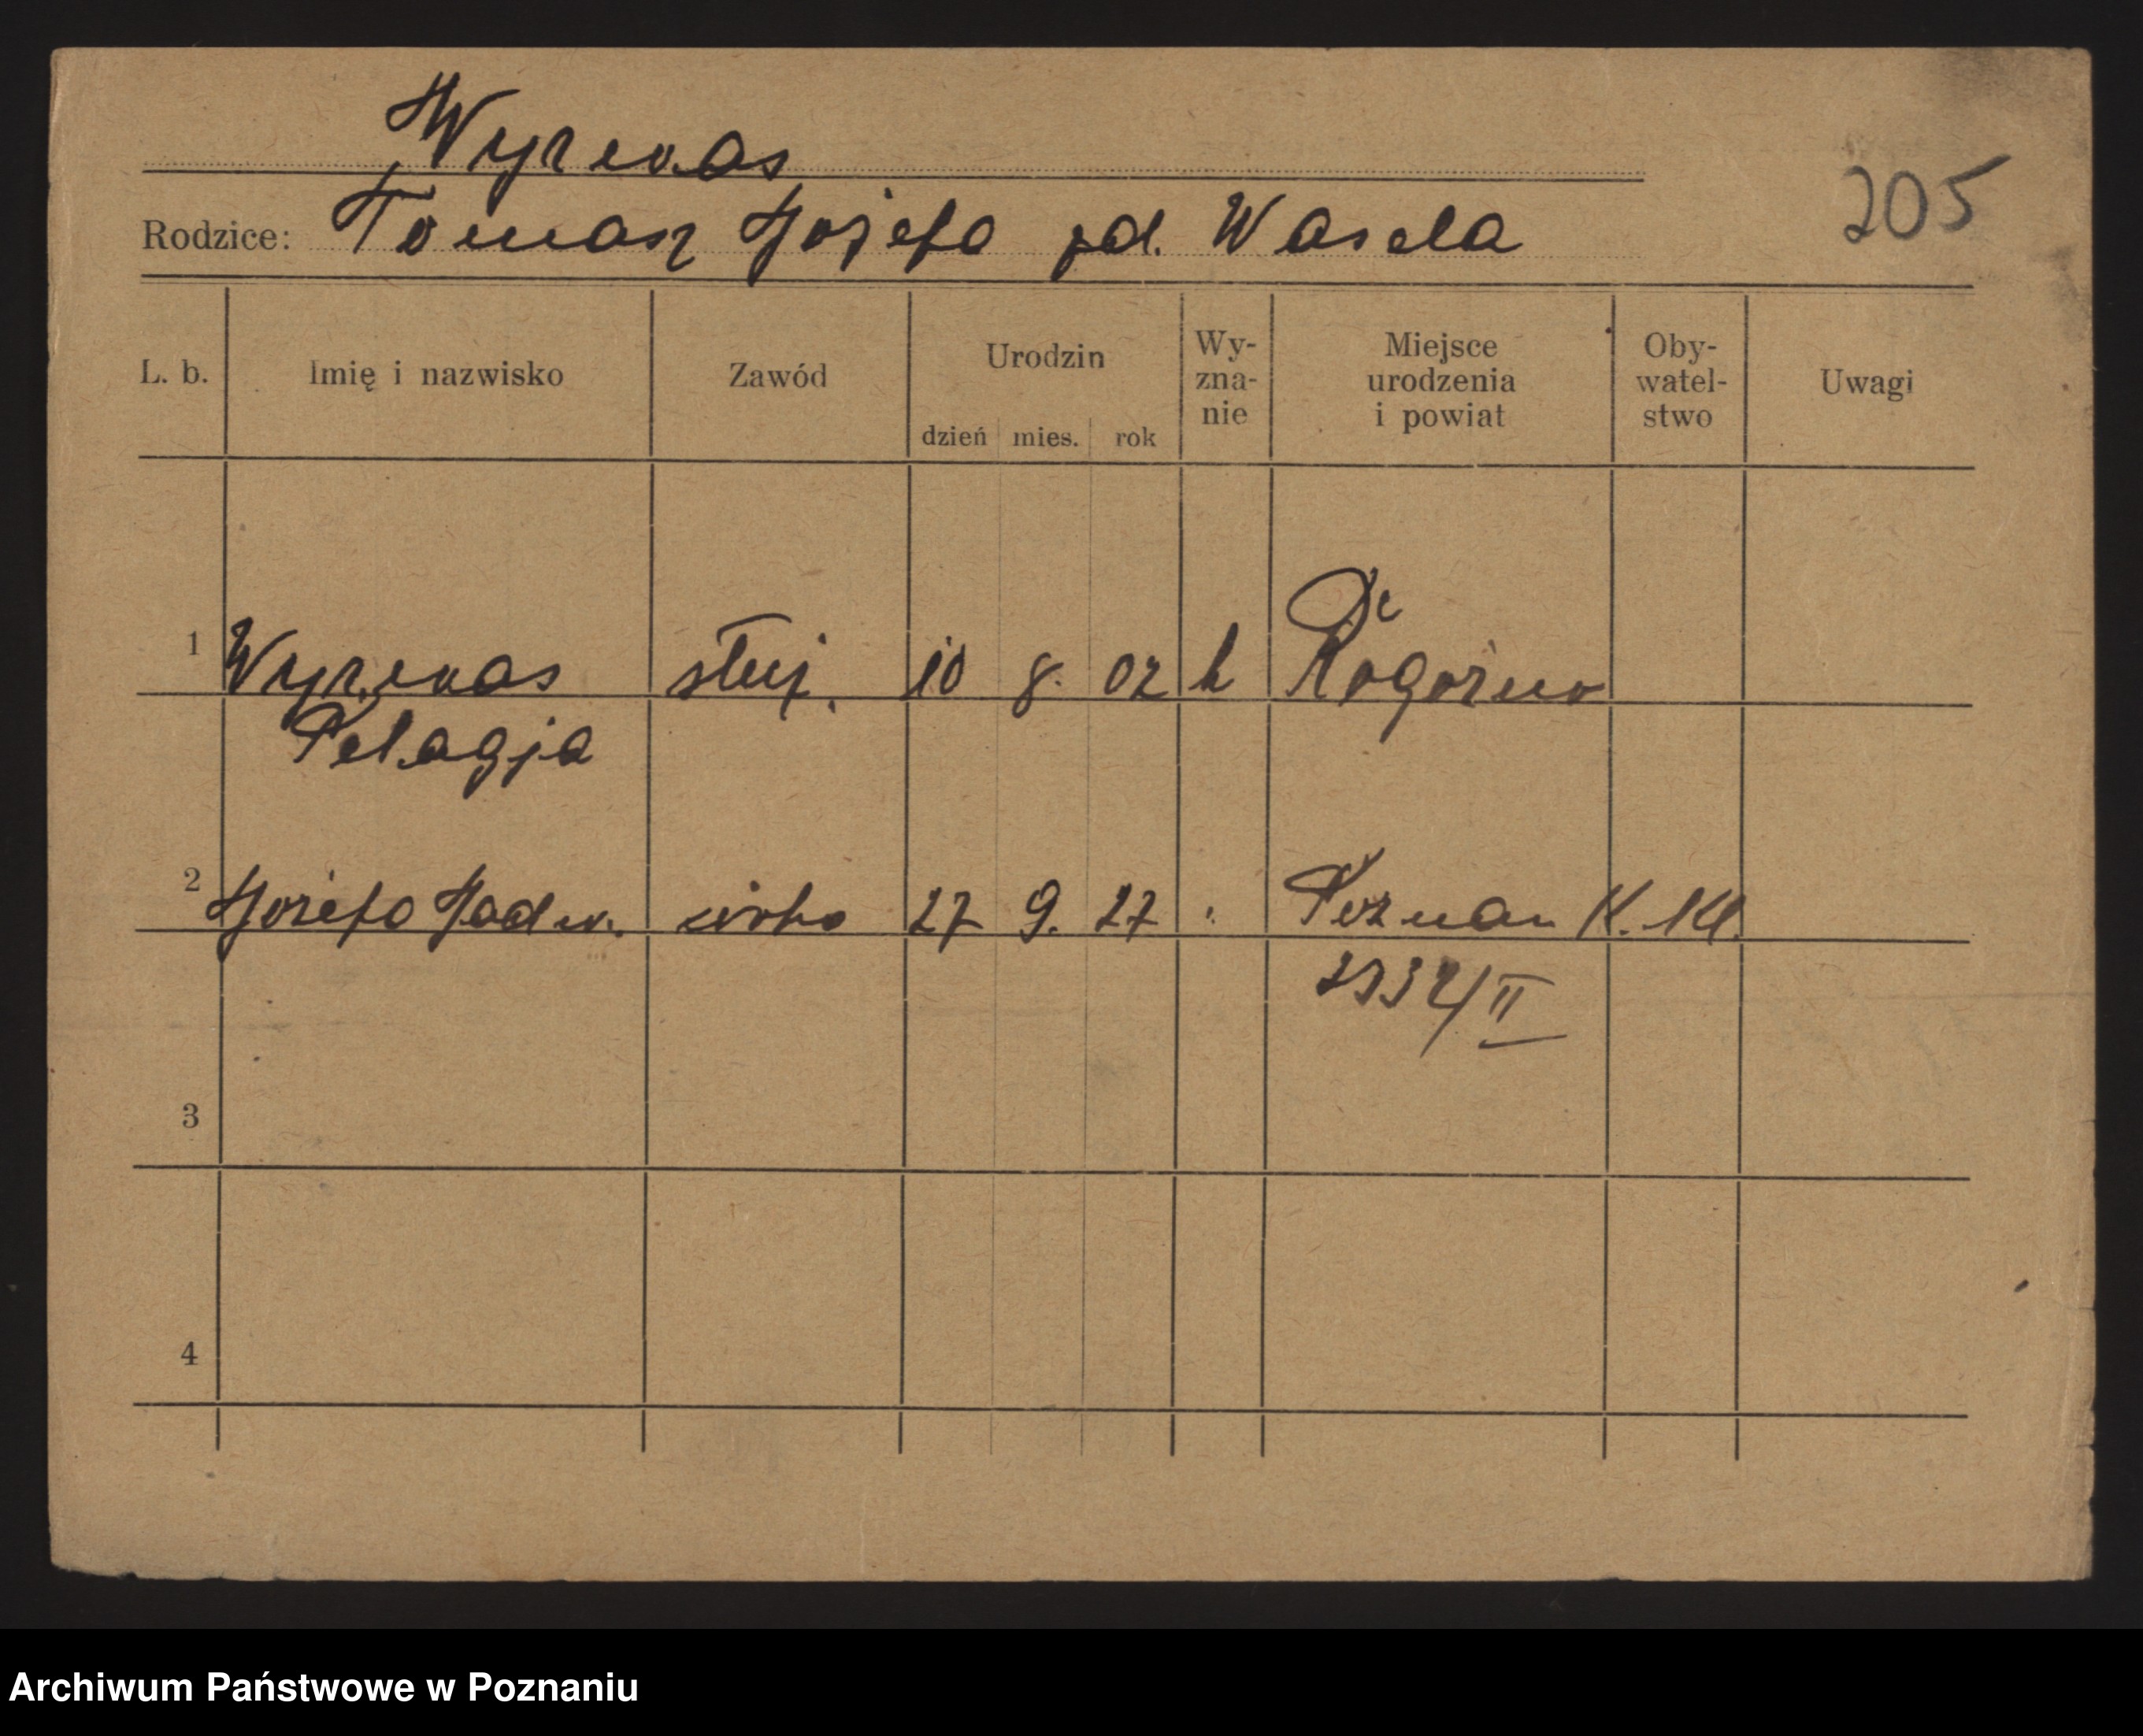 Wyrwas
205
Rodzice: Tomasz Józefa zd. Wasela
L. b. Imię i nazwisko Zawód Urodzin dzień mies. rok Wy-zna-nie Miejsce urodzenia i powiat Oby-watel-stwo Uwagi
1 Wyrwas służ. 10 8. 02 k Rogoźno
Pelagja
2 Józefa Jadw. córka 27 9. 27 Poznań K. Kl.
/II
3
4
Archiwum Państwowe w Poznaniu